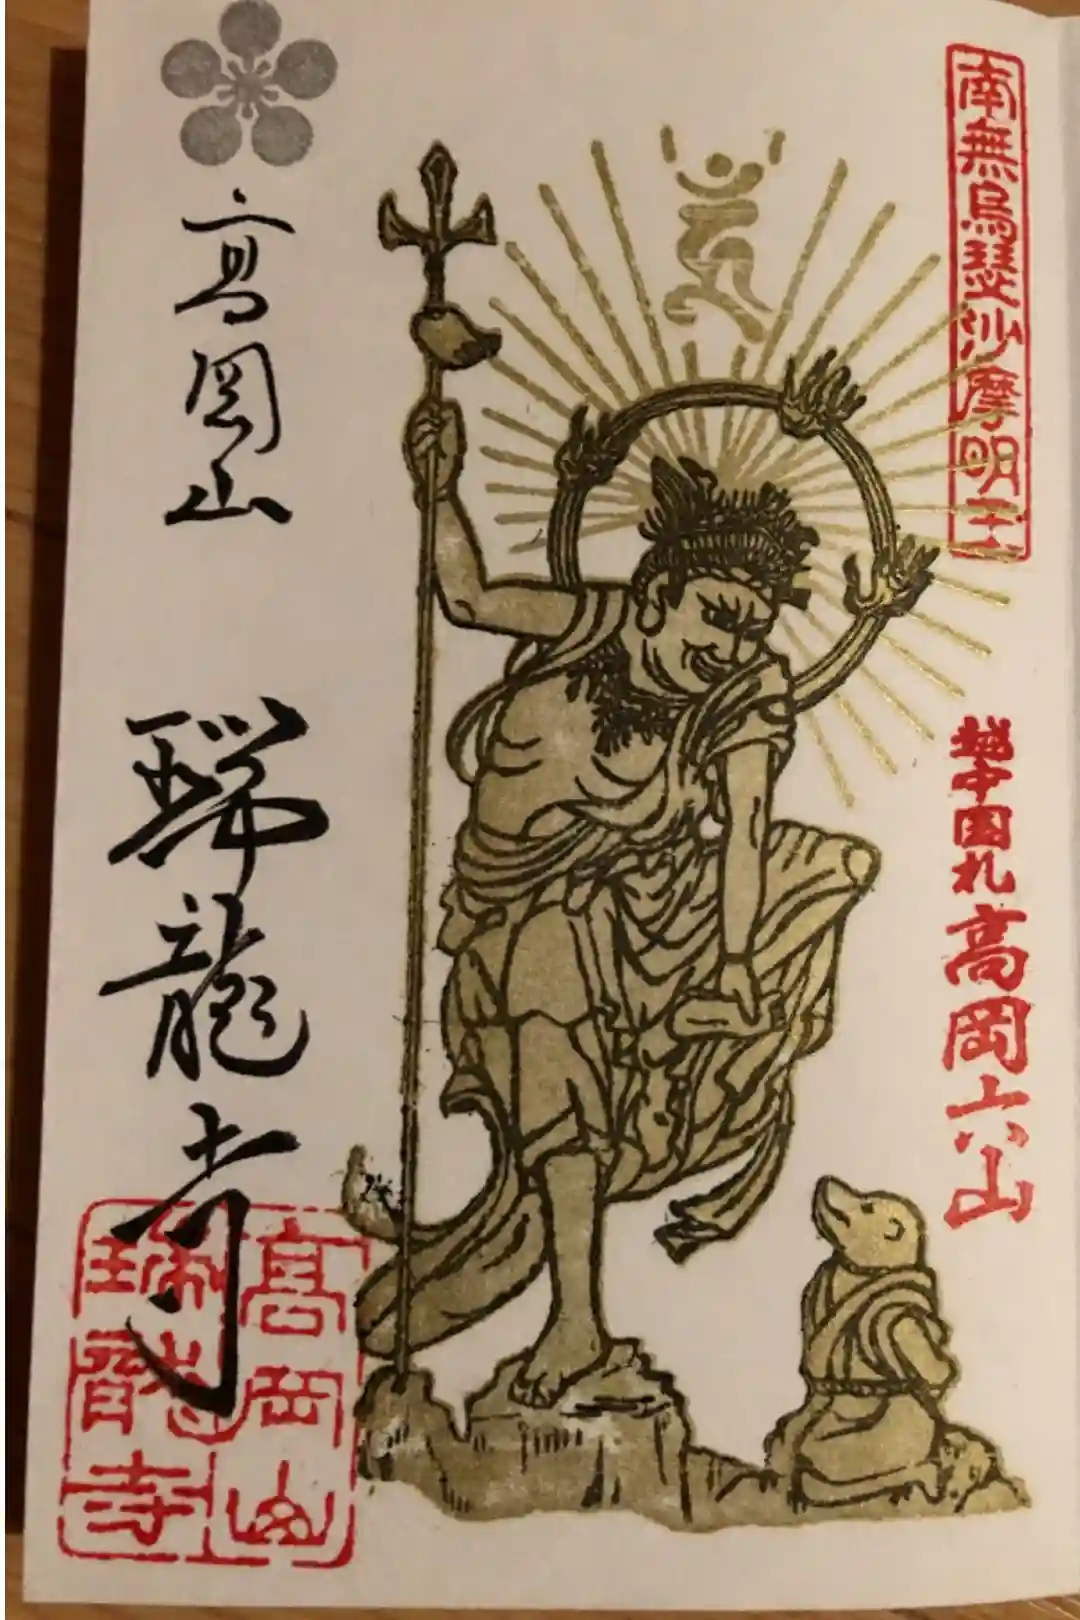 南無烏瑟沙摩明王
越中国札高岡六山
高岡山
瑞龍寺
高岡山
瑞龍寺